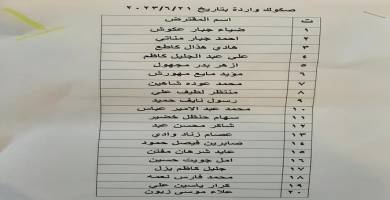 صكوك واردة بتاريخ ٢٠٢٣/٦/٢١
ت اسم المقترض
١ ضياء جبار عكوش
٢ احمد جبار مناتي
٣ هادي هذال كاطع
٤ علي عبد الجليل كاظم
٥ ازهر بدر مجهول
٦ مؤيد مايع مهورش
٧ محمد عوده شاهين
٨ منتظر لطيف علي
٩ رسول نايف حميد
١٠ محمد عبد الامير عباس
١١ سهام حنظل خضير
١٢ شاكر محسن عبد
١٣ عصام زناد وادي
١٤ صابرين فيصل حمود
١٥ عايد شرهان مفتن
١٦ امل جويت حسين
١٧ جليل كاظم يزل
١٨ محمد فارس نعمه
١٩ كرار ياسين علي
٢٠ علاء موسى زبون